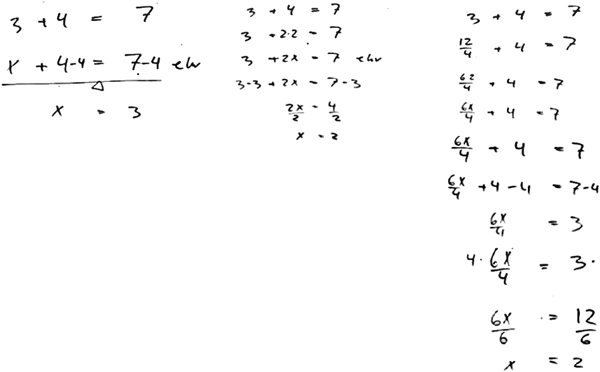 3 + 4 = 7
x + 4-4 = 7-4
x = 3
3 + 4 = 7
3 + 2·2 = 7
3 + 2x = 7
3-3 + 2x = 7-3
2x/2 = 4/2
x = 2
3 + 4 = 7
12/4 + 4 = 7
6·2/4 + 4 = 7
6x/4 + 4 = 7
6x/4 + 4 = 7
6x/4 + 4 - 4 = 7-4
6x/4 = 3
4 · 6x/4 = 3 ·
6x/6 = 12/6
x = 2